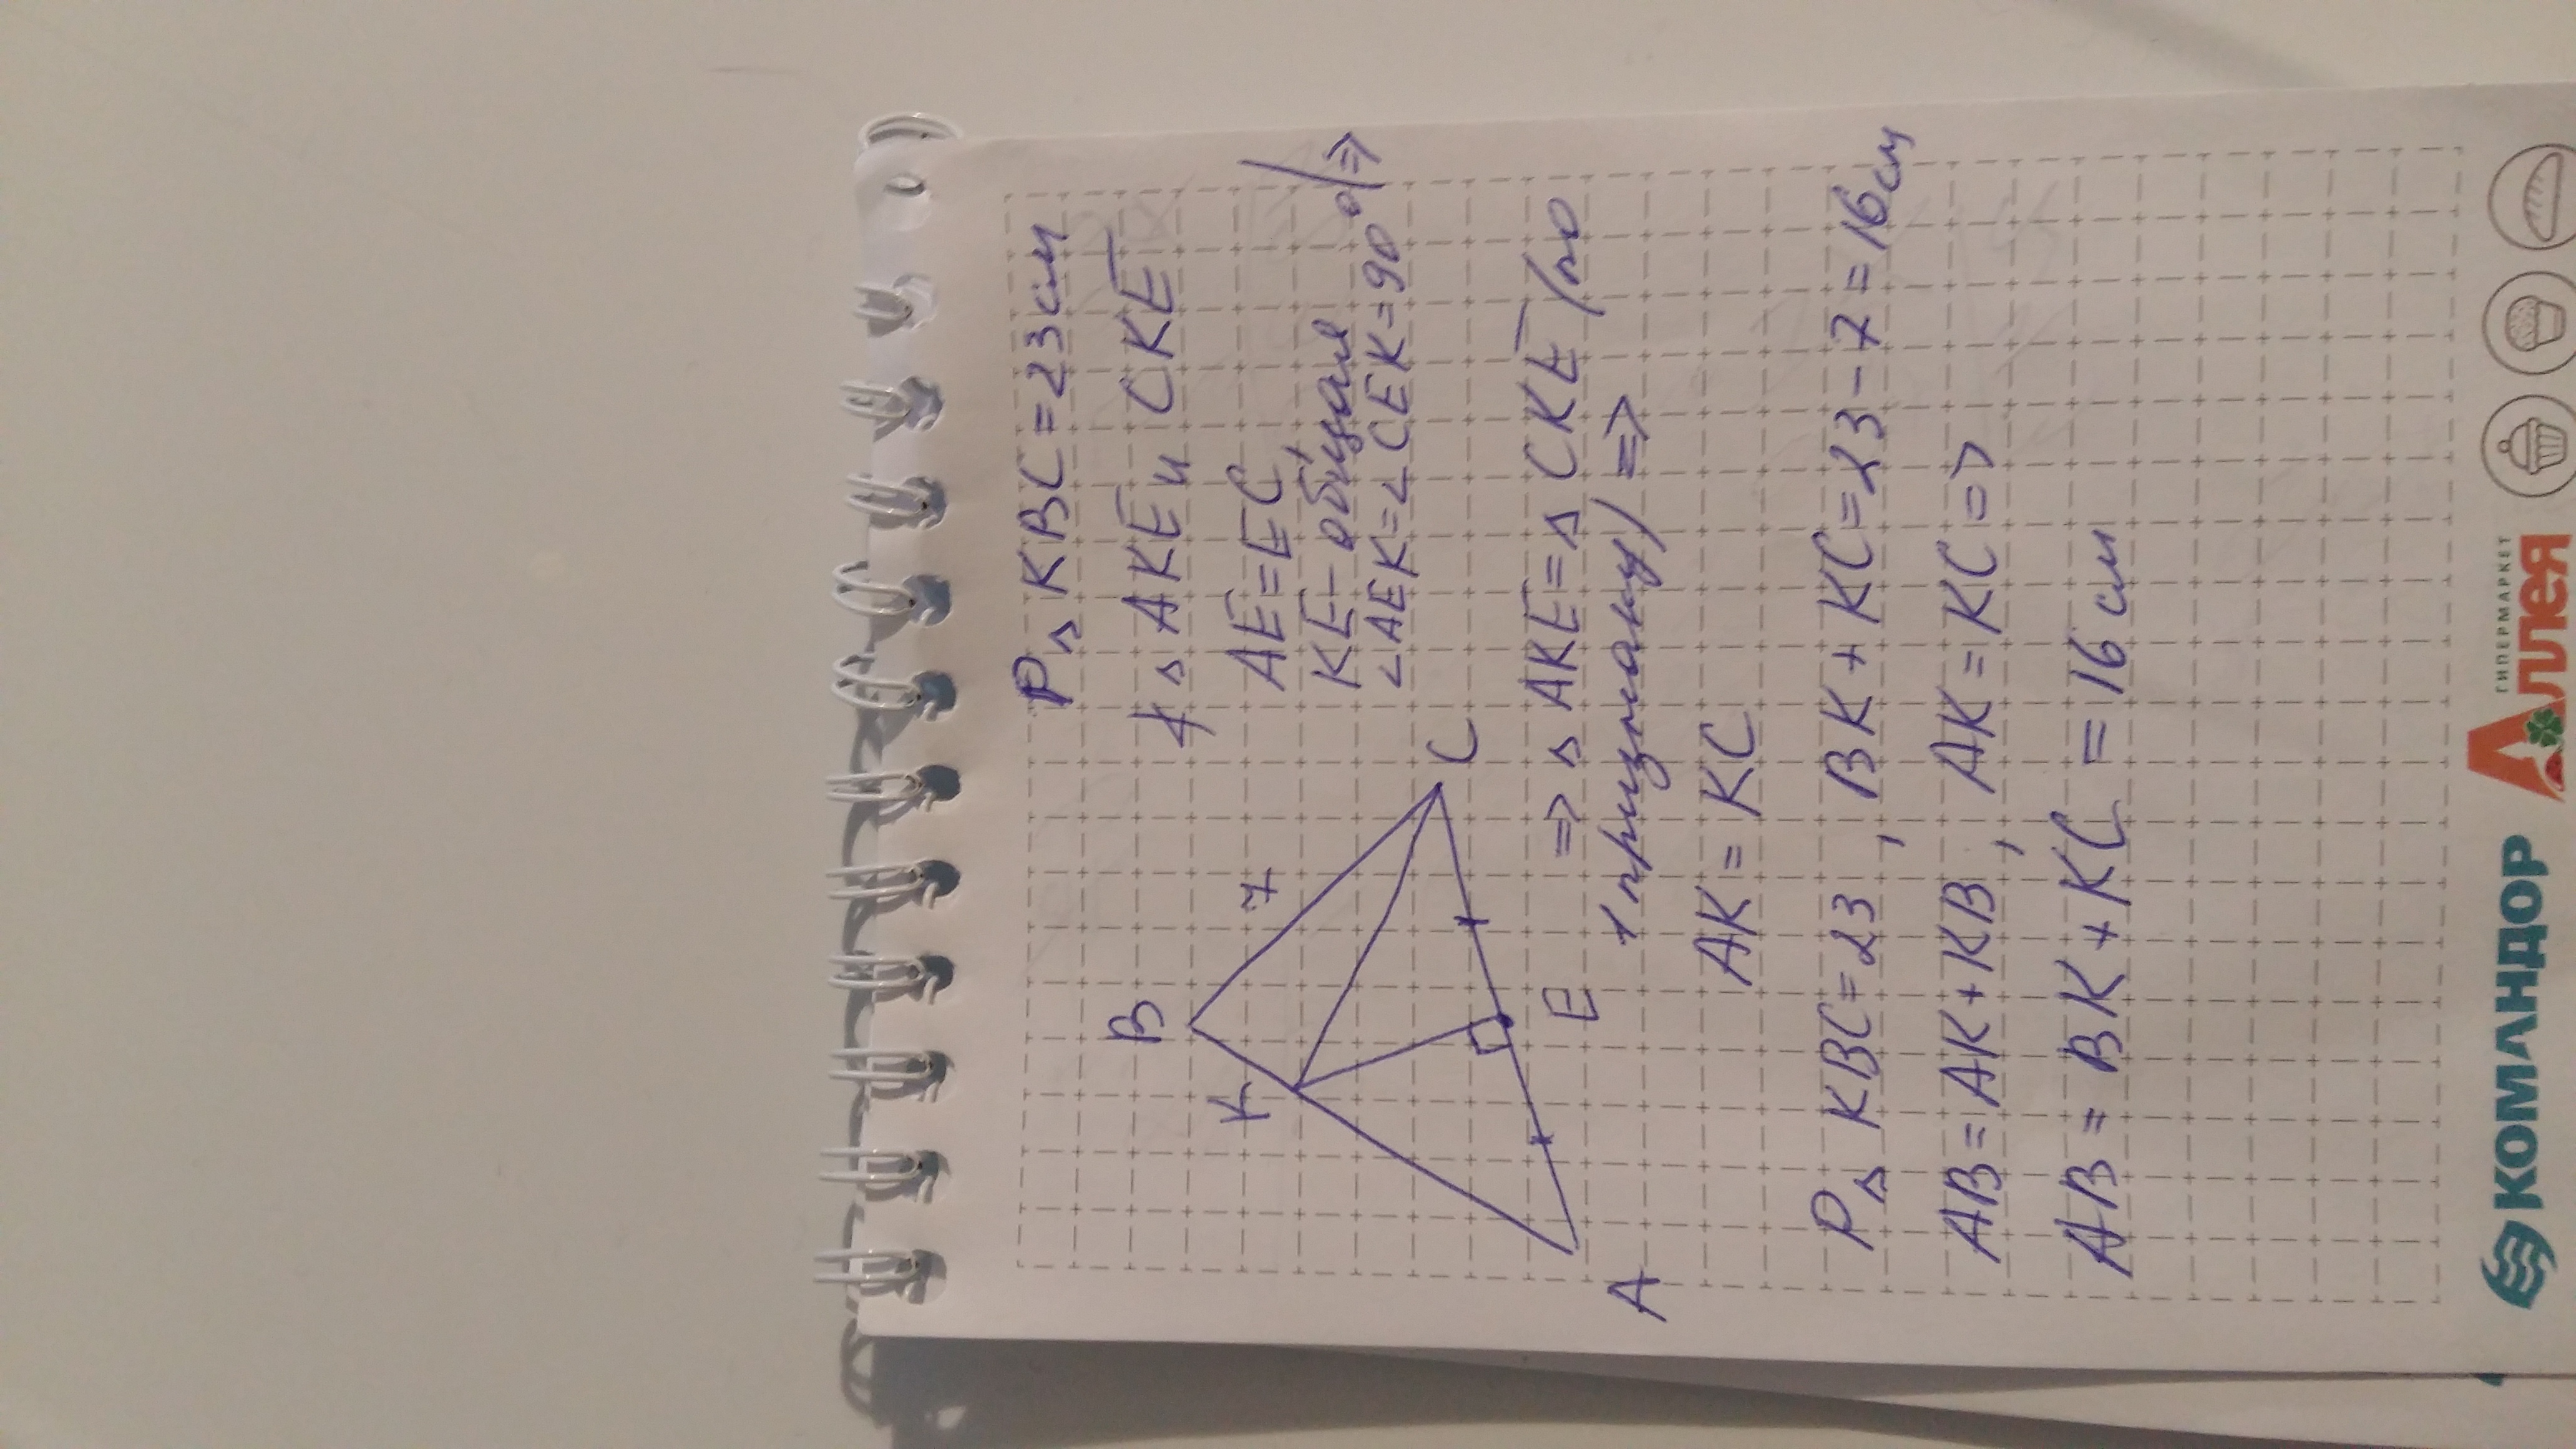 P△ KBC = 23 см
△ AKE и CKE
AE = EC
KE – общая
∠AEK = ∠CEK = 90° / ⇒
B
K
7
C
E
A
⇒ △ AKE = △ CKE /по
1 признаку) ⇒
AK = KC
P△ KBC = 23, BK + KC = 23 – 7 = 16 см
AB = AK + KB, AK = KC ⇒
AB = BK + KC = 16 см
КОМАНДОР
ГИПЕРМАРКЕТ
Аллея